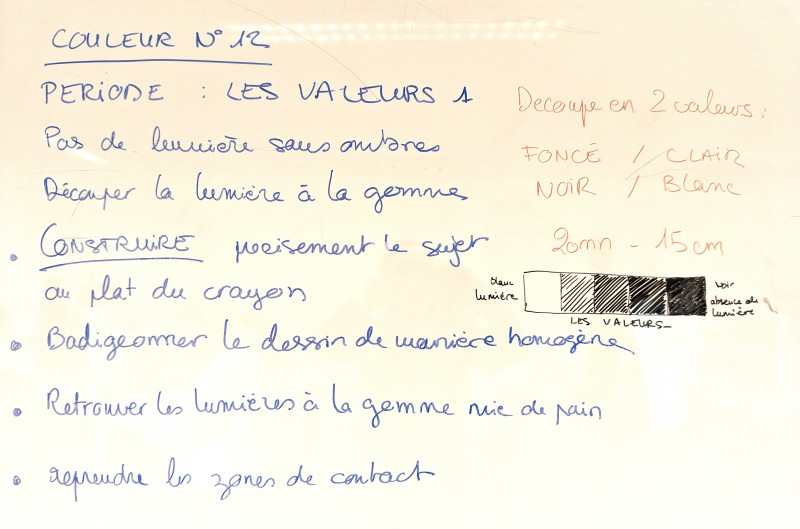 COULEUR N° 12
PERIODE : LES VALEURS 1
Pas de lumière sans ombres
Découper la lumière à la gemme
• CONSTRUIRE precisement le sujet
au plat du crayon
• Badigeonner le dessin de manière homogène
• Retrouver les lumières à la gemme mie de pain
• reprendre les zones de contact
Decoupe en 2 valeurs :
FONCÉ / CLAIR
NOIR / Blanc
20mn - 15cm
blanc
lumière
Noir
absence de
lumière
LES VALEURS